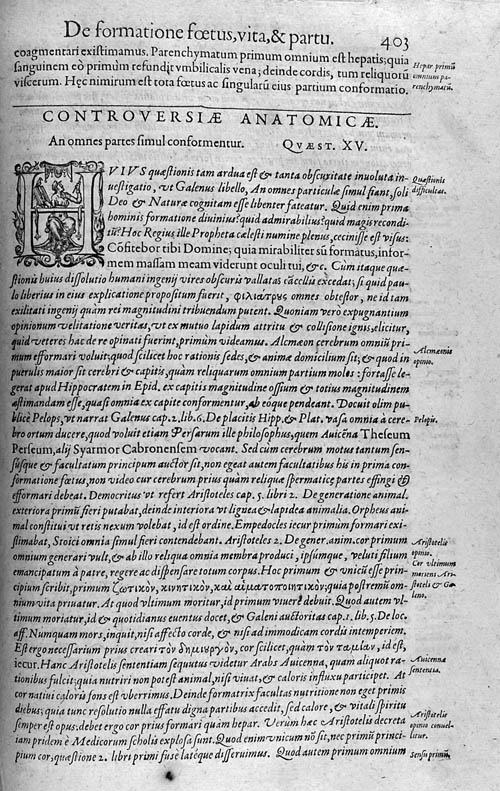 De formatione fœtus, vita, & partu. 403
coagmentari existimamus. Parenchymatum primum omnium est hepatis; quia
sanguinem eò primùm refundit vmbilicalis vena; deinde cordis, tum reliquorũ
viscerum. Hęc nimirum est tota fœtus ac singularũ eius partium conformatio.
Hepar primũ
omnium pa-
renchymatũ.
CONTROVERSIÆ ANATOMICÆ.
An omnes partes simul conformentur. QVÆST. XV.
HVIVS quæstionis tam ardua est & tanta obscuritate inuoluta in-
uestigatio, vt Galenus libello, An omnes particulæ simul fiant, soli
Deo & Naturæ cognitam esse libenter fateatur. Quid enim prima
hominis formatione diuinius? quid admirabilius? quid magis recondi-
tũ? Hoc Regius ille Propheta cælesti numine plenus, cecinisse est visus:
Cõfitebor tibi Domine; quia mirabiliter sũ formatus, infor-
mem massam meam viderunt oculi tui, &c. Cùm itaque quæ-
stionis huius dissolutio humani ingenij vires obscuris vallatas cãcellis excedat; si quid pau-
lo liberius in eius explicatione propositum fuerit, φιλιάτρȣς omnes obtestor, ne id tam
exilitati ingenij quàm rei magnitudini tribuendum putent. Quoniam vero expugnantium
opinionum velitatione veritas, vt ex mutuo lapidum attritu & collisione ignis, elicitur,
quid veteres hac de re opinati fuerint, primùm videamus. Alcmæon cerebrum omniũ pri-
mum efformari voluit; quod scilicet hoc rationis sedes, & animæ domicilium sit; & quod in
puerulis maior sit cerebri & capitis, quàm reliquarum omnium partium moles: fortasse le-
gerat apud Hippocratem in Epid. ex capitis magnitudine ossium & totius magnitudinem
æstimandam esse, quasi omnia ex capite conformentur, ab eoque pendeant. Docuit olim pu-
blicè Pelops, vt narrat Galenus cap. 2. lib. 6. De placitis Hipp. & Plat. vasa omnia à cere-
bro ortum ducere, quod voluit etiam Persarum ille philosophus, quem Auicẽna Theseum
Perseum, alij Syarmor Cabronensem vocant. Sed cùm cerebrum motus tantum sen-
súsque & facultatum principum auctor sit, non egeat autem facultatibus his in prima con-
formatione fœtus, non video cur cerebrum prius quàm reliquæ spermaticę partes effingi &
efformari debeat. Democritus vt refert Aristoteles cap. 5. libri 2. De generatione animal.
exteriora primũ fieri putabat, deinde interiora vt lignea & lapidea animalia. Orpheus ani-
mal constitui vt retis nexum volebat, id est ordine. Empedocles iecur primum formari exi-
stimabat, Stoici omnia simul fieri contendebant. Aristoteles 2. De gener. anim. cor primum
omnium generari vult, & ab illo reliqua omnia membra produci, ipsúmque, veluti filium
emancipatum à patre, regere ac dispensare totum corpus. Hoc primum & vnicũ esse prin-
cipium scribit, primum ζωτικὸν, κινητικὸν, καὶ αἱματοποιητικὸν; quia postremũ om-
nium vita priuatur. At quod vltimum moritur, id primum viuere debuit. Quod autem vl-
timum moriatur, id & quotidianus euentus docet, & Galeni auctoritas cap. 1. lib. 5. De loc.
aff. Numquam mors, inquit, nisi affecto corde, & nisi ad immodicam cordis intemperiem.
Est ergo necessarium prius creari τὸν δημιȣργὸν, cor scilicet, quàm τὸν ταμίαν, id est,
iecur. Hanc Aristotelis sententiam sequutus videtur Arabs Auicenna, quam aliquot ra-
tionibus fulcit; quia nutriri non potest animal, nisi viuat, & caloris influxu participet. At
cor natiui caloris fons est vberrimus. Deinde formatrix facultas nutritione non eget primis
diebus; quia tunc resolutio nulla effatu digna partibus accedit, sed calore, & vitali spiritu
semper est opus: debet ergo cor prius formari quàm hepar. Verùm hæc Aristotelis decreta
iam pridem è Medicorum scholis explosa sunt. Quod enim vnicum nõ sit, nec primũ princi-
pium cor, quæstione 2. libri primi fusè latéque disseruimus. Quod autem primum omnium
Quæstionis
difficultas.
Alcmæonis
opinio.
Pelopis.
Aristotelis
opinio.
Cor vltimum
moriens Ari-
stoteli & Ga-
leno.
Auicenna
sententia.
Aristotelis
opinio conuel-
litur.
Sensu primũ.